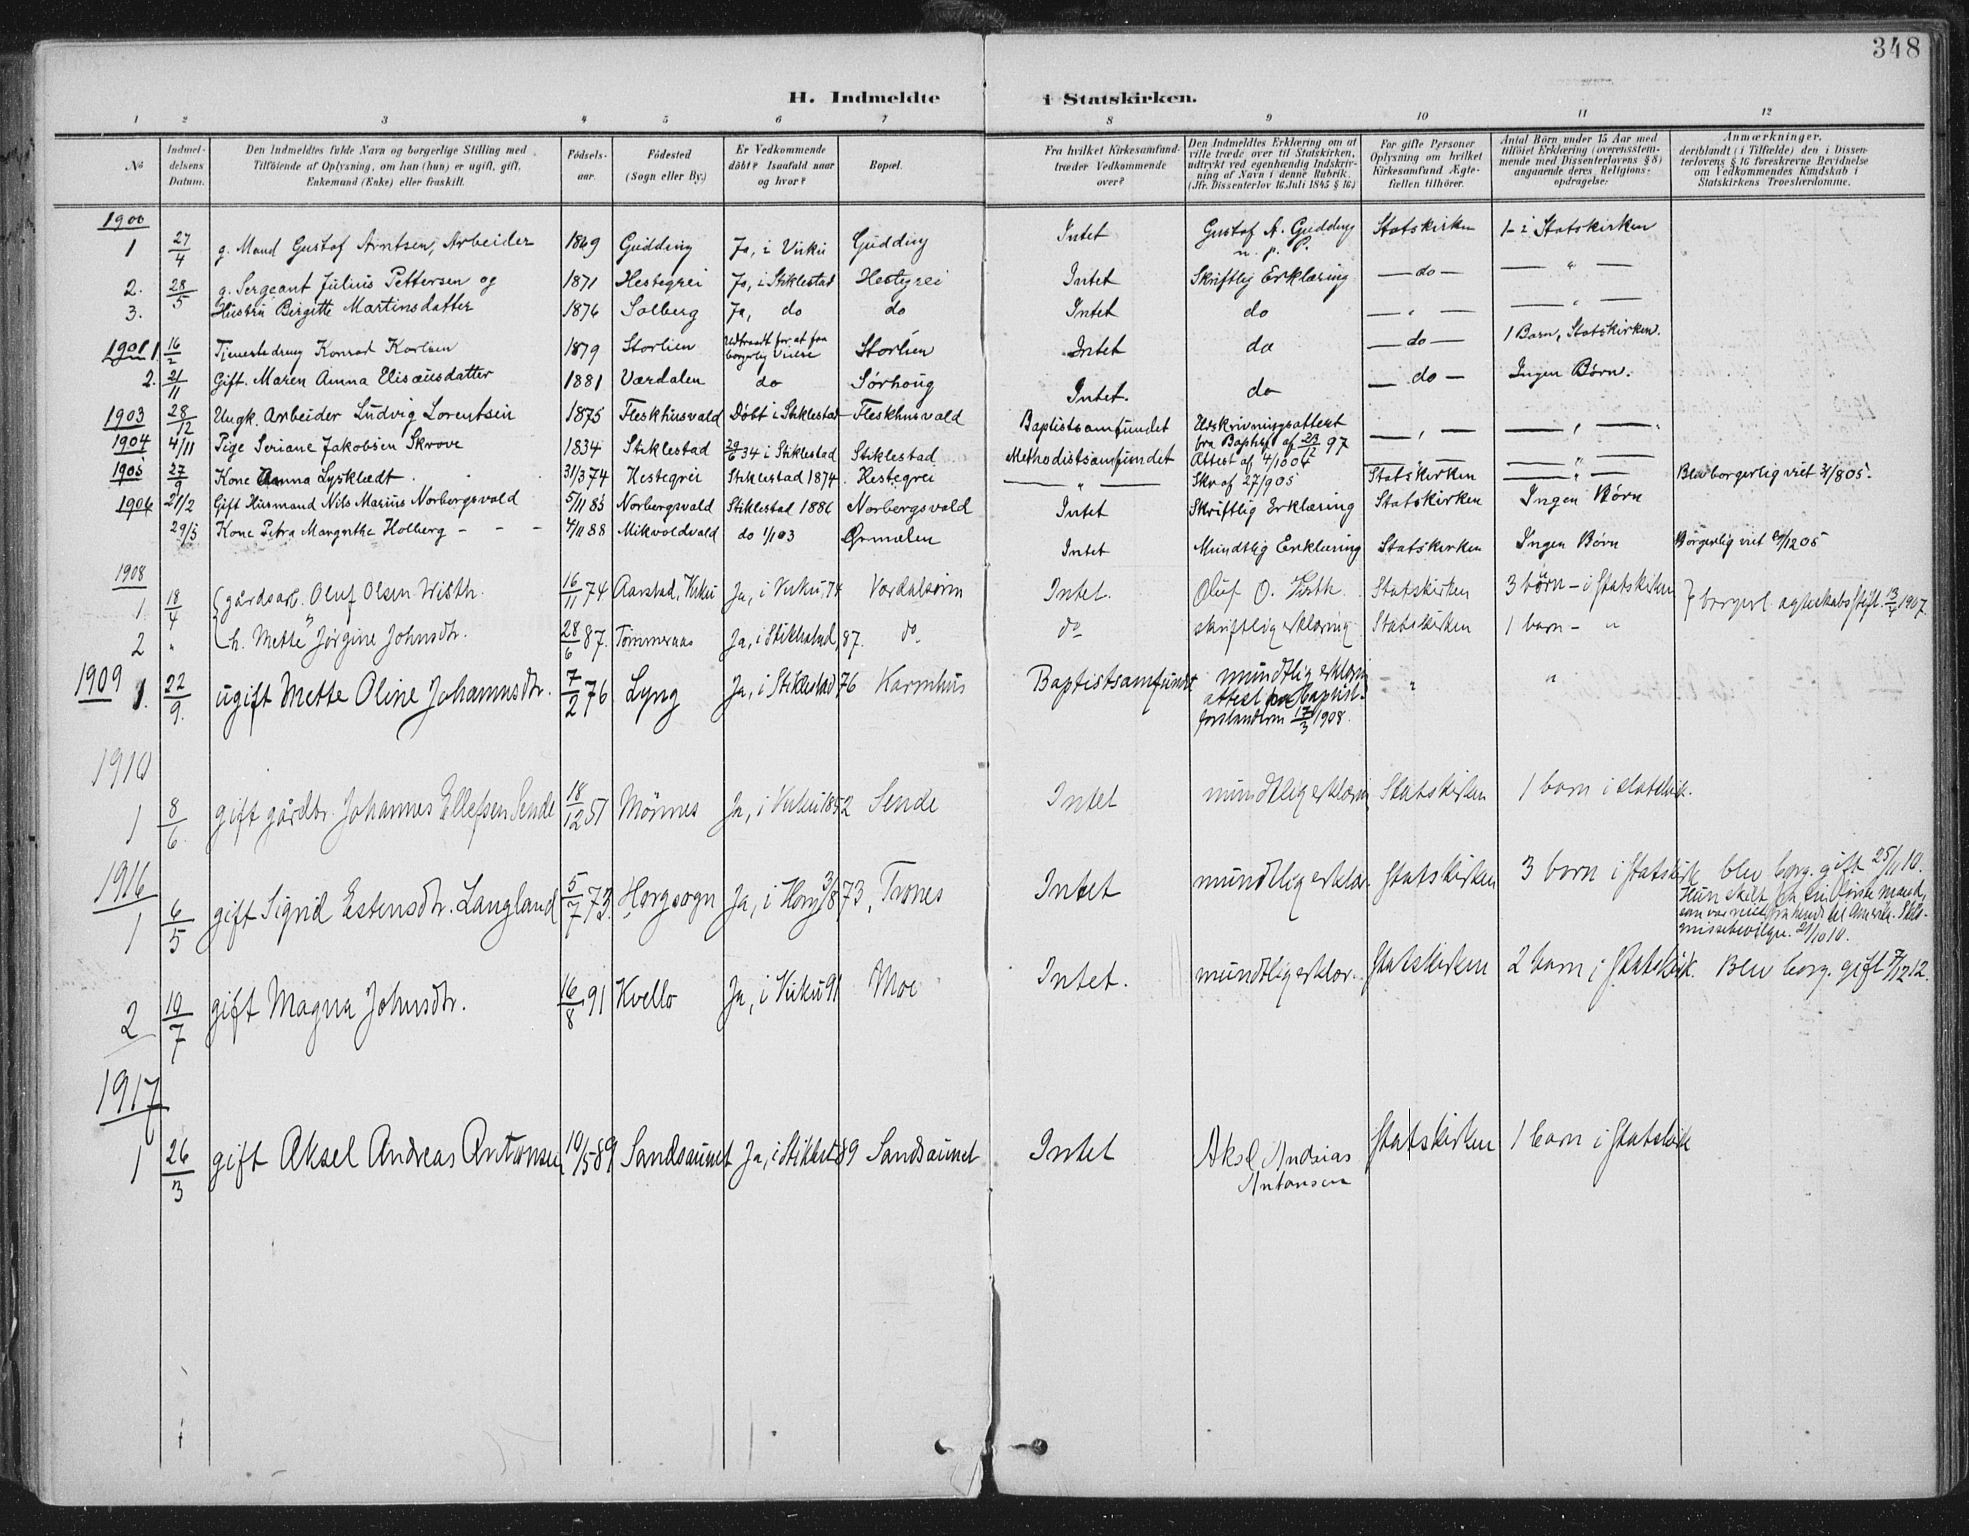 348
H. Indmeldte i Statskirken.
1 2 3 4 5 6 7 8 9 10 11 12
No
Indmel-
delsens
Datum.
Den Indmeldtes fulde Navn og borgerlige Stilling med
Tilföiende af Oplysning, om han (hun) er ugift, gift,
Enkemand (Enke) eller fraskilt.
Födsels-
aar.
Födested
(Sogn eller By.)
Er Vedkommende
döbt? Isaafald naar
og hvor?
Bopæl.
Fra hvilket Kirkesamfund
træder Vedkommende
over?
Den Indmeldtes Erklæring om at
ville træde over til Statskirken,
udtrykt ved egenhændig Indskriv-
ning af Navn i denne Rubrik.
(Jfr. Dissenterlov 16 Juli 1845 § 16.)
For gifte Personer
Oplysning om hvilket
Kirkesamfund Ægte-
fællen tilhörer.
Antal Börn under 15 Aar med
tilföiet Erklæring (overensstem-
mende med Dissenterlovens § 8)
angaaende deres Religions-
opdragelse.
Anmærkninger,
deriblandt (i Tilfælde) den i Dissen-
terlovens § 16 foreskrevne Bevidnelse
om Vedkommendes Kundskab i
Statskirkens Troeslærdomme.
1900
1 27/4 g. Mand Gustaf Arntsen, Arbeider 1869 Gudding Ja, i Vuku Gudding Intet Gustaf A. Gudding Statskirken 1 - i Statskirken
m. p. P.
2. 28/5 g. Sergeant Julius Pettersen og 1871 Hestegrei Ja, i Stiklestad Hestegrei Intet Skriftlig Erklæring - do - - " -
3. Hustru Birgitte Martinsdatter 1876 Solberg Ja, do do Intet do - " - - " -
1901 1 16/2 Tjenestedreng Konrad Karlsen 1879 Storlien Udtraadt for at faa
borgerlig Vielse Storlien Intet do - do - 1 Barn, Statskirken.
2. 21/11 Gift. Maren Anna Elisæusdatter 1881 Værdalen do Sørhoug Intet. do - do - Ingen Børn.
1903 28/12 Ungk. Arbeider Ludvig Lorentsen 1875 Fleskhusvald Döbt i Stiklestad Fleskhusvald Baptistsamfundet Udskrivningsattest
fra Baptist. af 28/12 97 - " - - " -
1904 4/11 Pige Seriane Jakobsen Skrove 1834 Stiklestad 29/6 34 i Stiklestad Stiklestad Methodistsamfundet Attest af 4/10 04 - " - - " -
1905 27/9 Kone Anna Lysklædt 31/3 74 Hestegrei Stiklestad 1874. Hestegrei - " - Skr af 27/9 05 Statskirken - " - Blev borgerlig viet 31/8 05.
1906 21/2 Gift Husmand Nils Marius Norbergsvald 5/11 85 Norbergsvald Stiklestad 1886 Norbergsvald Intet Skriftlig Erklæring Statskirken Ingen Børn
29/5 Kone Petra Margrethe Holberg - - - 4/11 88 Mikvoldvald do 1/1 03 Ørmælen Intet Mundtlig Erklæring Statskirken Ingen Børn Borgerlig viet 12 05
1908
1. 18/4 gårdsarb. Oluf Olsen Wisth. 16/11 74 Aarstad, Vuku Ja, i Vuku, 74 Værdalsøren Intet. Oluf O. Visth. Statskirken 3 børn - i Statskirken } borgerl. ægteskabsstift. 13/4 1907.
2 " h. Mette Jørgine Johnsdtr. 28/6 87. Tømmeraas Ja, i Stiklestad, 87. do do skriftlig erklæring Statskirken 1 barn - "
1909 1. 22/9. ugift Mette Oline Johannesdtr. 7/2 76 Lyng Ja, i Stiklestad 76 Karmhus Baptistsamfundet mundtlig erklæring " "
attest fra baptist-
forstanderen 17/3 1908.
1910
1 8/6. gift gårdbr. Johannes Ellefsen Sende 18/12 51 Mönnes Ja, i Vuku 1852 Sende Intet mundtlig erklæring Statskirken 1 barn i statskirk.
1916
1 6/5 gift Sigrid Estensdtr. Langland 5/7 73. Horgsogn Ja, i Horg 3/8 73, Trones Intet mundtlig erklær. Statskirken 3 barn i Statskirk. blev borg. gift 25/11 10.
Hun skilt fra sin første mand,
som var reist fra hende til Amerika. Skils-
missebevilgn. 21/10 10.
2 19/7 gift Magna Johnsdtr. 16/8 91 Kvello Ja, i Vuku 91 Moe Intet. mundtlig erklær. Statskirken 2 barn i Statskirk. Blev borg. gift 7/12 12.
1917
1 26/3 gift Aksel Andreas Antonsen 10/5 89 Sandsaunet Ja, i Stiklest 89 Sandsaunet Intet Aksel Andreas Statskirken 1 barn i Statskirk
Antonsen